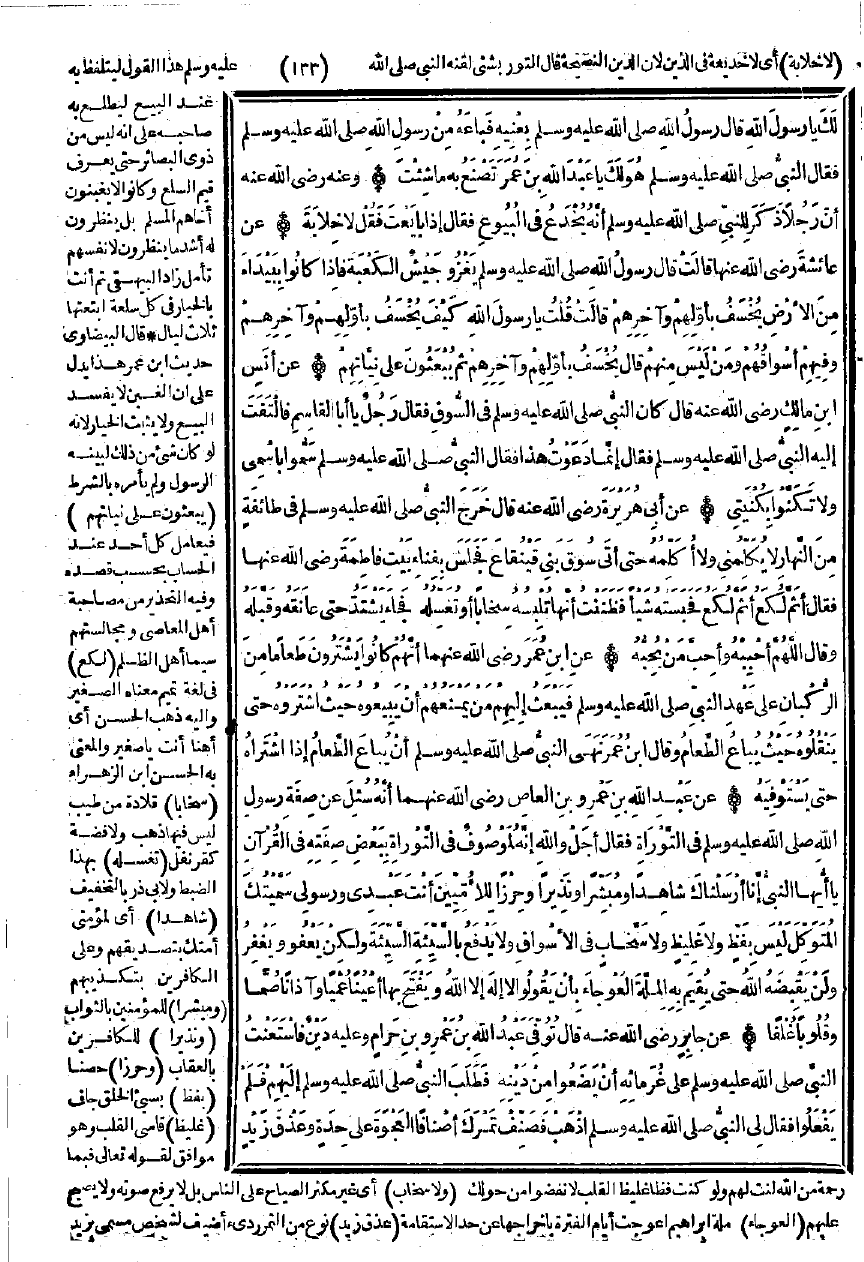 (لاخلابة) أى لاخديعة فى الدين لان الدين النصيحة قال التوربشتى لقنه النبى صلى الله (١٣٣) عليه وسلم هذا القول ليتلفظ به
لَكَ يا رسولَ اللهِ قال رسولُ اللهِ صلى الله عليه وسلم بِعْنِيهِ فَباعَهُ مِنْ رسولِ اللهِ صلى الله عليه وسلم
فقال النبىُّ صلى الله عليه وسلم هُوَ لَكَ يا عَبْدَ اللهِ بنَ عمرَ تَصْنَعُ به ما شِئْتَ ۞ وعنه رضى الله عنه
أنّ رَجُلاً ذَكَرَ للنبىِّ صلى الله عليه وسلم أنّهُ يُخْدَعُ فى البُيُوعِ فقال إذا بايَعْتَ فَقُلْ لا خِلابَةَ ۞ عن
عائشةَ رضى الله عنها قالتْ قال رسولُ اللهِ صلى الله عليه وسلم يَغْزُو جَيْشٌ الكَعْبَةَ فإذا كانُوا بِبَيْداءَ
مِنَ الأرْضِ يُخْسَفُ بأوّلِهِمْ وآخِرِهِمْ قالَتْ قُلْتُ يا رسولَ اللهِ كَيْفَ يُخْسَفُ بأوّلِهِمْ وآخِرِهِمْ
وفِيهِمْ أسْواقُهُمْ ومَنْ لَيْسَ مِنهمْ قال يُخْسَفُ بأوّلِهِمْ وآخِرِهِمْ ثم يُبْعَثُونَ على نِيّاتِهِمْ ۞ عن أنَسِ
ابنِ مالِكٍ رضى الله عنه قال كان النبىُّ صلى الله عليه وسلم فى السُّوقِ فقال رَجُلٌ يا أبا القاسِمِ فالْتَفَتَ
إليه النبىُّ صلى الله عليه وسلم فقال إنّما دَعَوْتُ هذا فقال النبىُّ صلى الله عليه وسلم سَمُّوا باسْمِى
ولا تَكَنَّوْا بِكُنْيَتِى ۞ عن أبى هريرةَ رضى الله عنه قال خَرَجَ النبىُّ صلى الله عليه وسلم فى طائفةٍ
مِنَ النَّهارِ لا يُكَلِّمُنِى ولا أُكَلِّمُهُ حتى أتى سُوقَ بنى قَينُقاعَ فجلسَ بِفِناءِ بَيْتِ فاطمةَ رضى الله عنها
فقال أثَمَّ لُكَعُ أثَمَّ لُكَعُ فحبسته شيأ فظننت أنها تلبسه سخابا أو تغسله فجاء يشتد حتى عانقه وقبله
وقال اللّهُمَّ أحْبِبْهُ وأحِبَّ مَنْ يُحِبُّهُ ۞ عنِ ابنِ عُمَرَ رضى الله عنهما أنّهُمْ كانُوا يَشْتَرُونَ طَعاماً مِنَ
الرُّكْبانِ على عَهْدِ النبىِّ صلى الله عليه وسلم فيبعث إليهم من يمنعهم أن يبيعوه حيث اشتروه حتى
يَنْقُلُوهُ حَيْثُ يُباعُ الطَّعامُ وقال ابنُ عُمَرَ نَهَى النبىُّ صلى الله عليه وسلم أنْ يُباعَ الطَّعامُ إذا اشْتَراهُ
حتى يَسْتَوْفِيَهُ ۞ عن عَبْدِ اللهِ بنِ عَمْرِو بنِ العاص رضى الله عنهما أنّهُ سُئِلَ عن صِفَةِ رسولِ
اللهِ صلى الله عليه وسلم فى التَّوْراةِ فقال أجَلْ واللهِ إنّهُ لَمَوْصُوفٌ فى التَّوْراةِ بِبَعْضِ صِفَتِهِ فى القُرْآنِ
يا أيُّها النبىُّ إنّا أرْسَلْناكَ شاهِداً ومُبَشِّراً ونَذِيراً وحِرْزاً للأُمِّيِّينَ أنْتَ عَبْدِى ورسولى سَمَّيْتُكَ
المُتَوَكِّلَ لَيْسَ بِفَظٍّ ولا غَلِيظٍ ولا سَخّابٍ فى الأسْواقِ ولا يَدْفَعُ بالسَّيِّئَةِ السَّيِّئَةَ ولكِنْ يَعْفُو ويَغْفِرُ
ولَنْ يَقْبِضَهُ اللهُ حتى يُقِيمَ بِهِ المِلَّةَ العَوْجاءَ بأنْ يَقُولُوا لا إلهَ إلا اللهُ ويَفْتَحَ بها أعْيُناً عُمْياً وآذاناً صُمّاً
وقُلُوباً غُلْفاً ۞ عن جابِرٍ رضى الله عنه قال تُوُفِّىَ عَبْدُ اللهِ بنُ عَمْرِو بنِ حَرامٍ وعليه دَيْنٌ فاسْتَعَنْتُ
النبىَّ صلى الله عليه وسلم على غُرَمائِهِ أنْ يَضَعُوا مِنْ دَيْنِهِ فَطَلَبَ النبىُّ صلى الله عليه وسلم إلَيْهِمْ فَلَمْ
يَفْعَلُوا فقال لى النبىُّ صلى الله عليه وسلم اذْهَبْ فَصَنِّفْ تَمْرَكَ أصْنافاً العَجْوَةَ على حِدَةٍ وعَذْقَ زَيْدٍ
عند البيع ليطلع به
صاحبه على انه ليس من
ذوى البصائر حتى يعرف
قيم السلع وكانوا لا يغبنون
أخاهم المسلم بل ينظرون
له أشد ما ينظرون لانفسهم
تأمل زاد البيهقى ثم أنت
بالخيار فى كل سلعة ابتعتها
ثلاث ليال * قال البيضاوى
حديث ابن عمر هذا يدل
على ان الغبن لا يفسد
البيع ولا يثبت الخيار لانه
لو كان شئ من ذلك لبينه
الرسول ولم يأمره بالشرط
(يبعثون على نياتهم)
فيعامل كل أحد عند
الحساب بحسب قصده
وفيه التحذير من مصاحبة
أهل المعاصى ومجالستهم
سيما أهل الظلم (لكع)
فى لغة تميم معناه الصغير
واليه ذهب الحسن أى
أهنا أنت يا صغير والمعنى
به الحسن ابن الزهراء
(سخابا) قلادة من طيب
ليس فيها ذهب ولا فضة
كقرنفل (تغسله) بهذا
الضبط ولابى ذر بالتخفيف
(شاهدا) أى لمؤمنى
أمتك بتصديقهم وعلى
الكافرين بتكذيبهم
(ومبشرا) للمؤمنين بالثواب
(ونذيرا) للكافرين
بالعقاب (وحرزا) حصنا
(بفظ) بسئ الخلق جاف
(غليظ) قاسى القلب وهو
موافق لقوله تعالى فبما
رحمة من الله لنت لهم ولو كنت فظا غليظ القلب لانفضوا من حولك (ولا سخاب) أى غير مكثر الصياح على الناس بل لا يرفع صوته ولا يصيح
عليهم (العوجاء) ملة ابراهيم اعوجت أيام الفترة باخراجها عن حد الاستقامة (عذق زيد) نوع من التمر ردىء أضيف لشخص مسمى بزيد